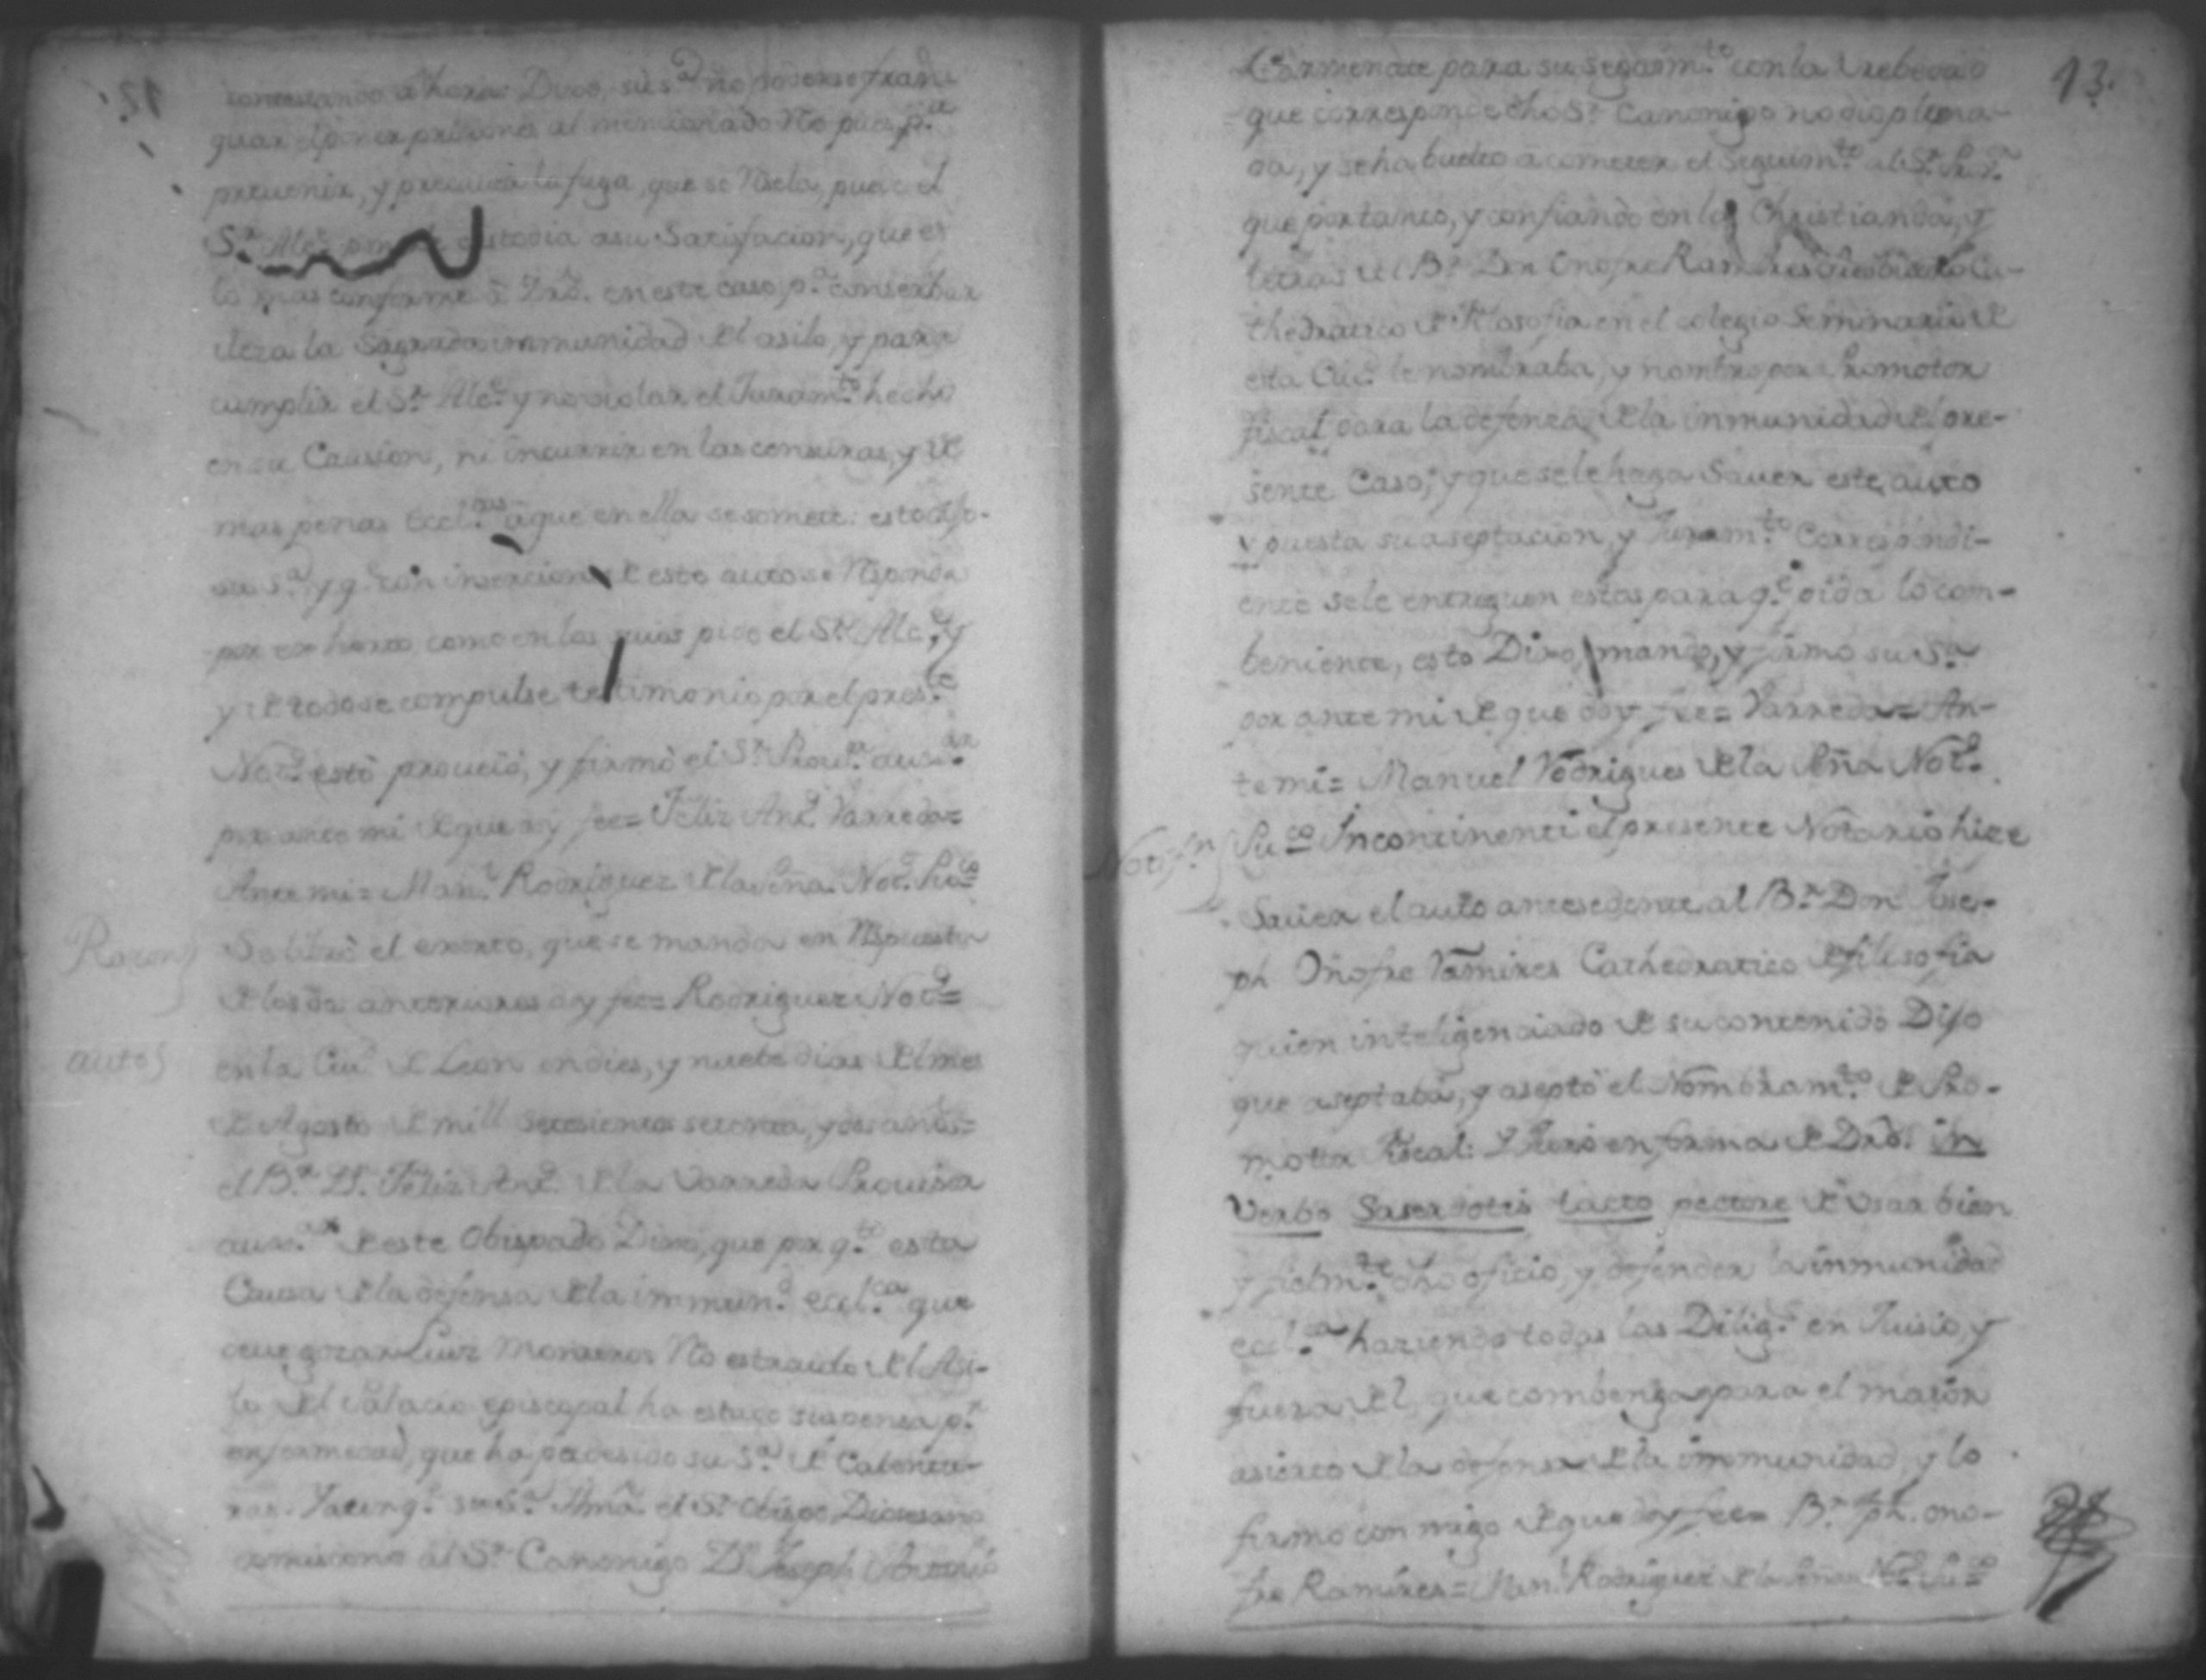 contestando ahora: Dixo, su S.ª no poderse fran
quear el poner priciones al mencionado Reo pues p.ª
prevenir, y precaver la fuga, que se Resela, puede el
S.r Alc.e custodia a su Satisfacion, que es
lo mas conforme à Dro. en este caso, p.ª conserbar
ileza la Sagrada immunidad del asilo, y para
cumplir el S.r Alc.e y no violar el Juram.to hecho
en su Causion, ni incurrir en las censuras, y de
mas penas Eccl.cas à que en ella se somete: esto dijo
su S.ª y q.e con insercion de este auto se Responda
por exhorto como en los suios pide el S.r Alc.e y
y de todo se compulse testimonio por el pres.te
Not.o esto proveiò, y firmò el S.r Prov.or aux.ar
por ante mi de que doy fee= Feliz Ant.o Varreda=
Ante mi= Man.l Rodriguez de la Peña Not.o Pu.co
Razon
Se librò el exorto, que se manda en Respuesta
de los dos anteriores doy fee= Rodriguez Not.o=
auto
en la Ciu.d de Leon en dies, y nuebe dias del mes
de Agosto de mill setesientos setenta, y dos anõs=
el B.r D. Feliz Ant.o de la Varreda Provisor
aux.ar de este Obispado Dixo, que por q.to esta
Causa de la defensa de la immun.d eccl.ca que
deve gozar Luiz Reo estraido del Asi-
lo del Palacio episcopal ha estado suspensa p.r
enfermedad, que ha padesido su S.ª de Calentu-
ras. Y aten q.e su S.ª Illmã. el S.r Obispo Diocesano
al S.r Canonigo D.n Joseph Antonio
13.
para su seguim.to con la brebedad
que corresponde dho S.r Canonigo no dio plena-
da, y se ha buelto a cometer el seguim.to al S.r
que portanto, y confiando en la Christiandad, y
letras del B.r Don Onofre Ramires Ca-
thedratico de filosofia en el colegio Seminario de
esta Ciu.d le nombraba, y nombró por Promotor
fiscal para la defenza de la inmunidad del pre-
sente Caso, y que se le haga Saver este auto
y puesta su aseptacion, y Juram.to Correspondi-
ente se le entreguen estos para q.e pida lo com-
beniente, esto Dixo, mandò, y firmò su S.ª
por ante mi de que doy fee= Varreda= An-
te mi= Manuel Rodrigues de la Peña Not.o
Notif.n
Pu.co Incontinenti el presente Notario hize
Saver el auto antesedente al B.r Don Jose-
ph Onofre Ramires Cathedratico de filosofia
quien inteligenciado de su contenido Dijo
que aseptaba, y aseptò el Nombram.to de Pro-
motor Fiscal: Y Jurò en forma de Dro. in
Verbo Saserdotis tacto pectore de Vsar bien
y fielm.te dho oficio, y defender la inmunidad
eccl.ca haziendo todas las Dilig.s en Juisio, y
fuera de el, que combenga para el maior
asierto de la defensa de la immunidad, y lo
firmò con migo de que doy fee= B.r Jph. ono-
fre Ramires= Man.l Rodriguez de la Peña Not.o Pu.co